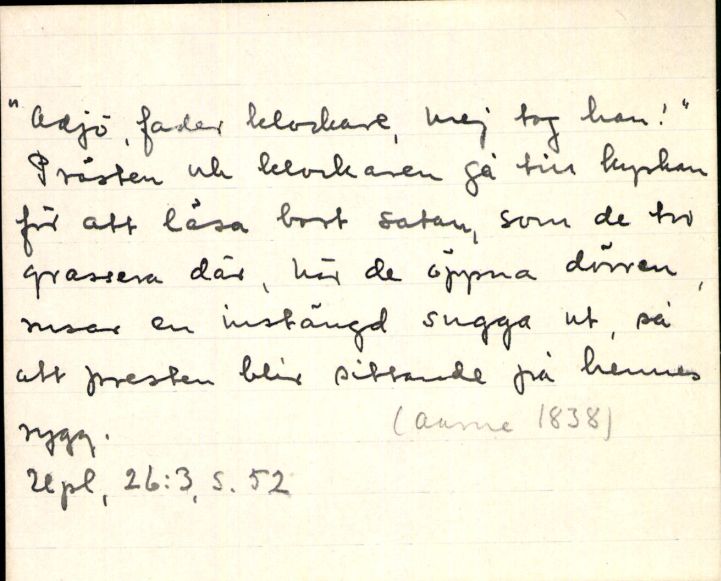 "Adjö, fader klockare, mej tog han!"
Prästen och klockaren gå till kyrkan
för att läsa bort satan, som de tro
grassera där, när de öppna dörren,
rusar en instängd sugga ut, så
att presten blir sittande på hennes
rygg.
(Aarne 1838)
Upl, 26:3, s. 52